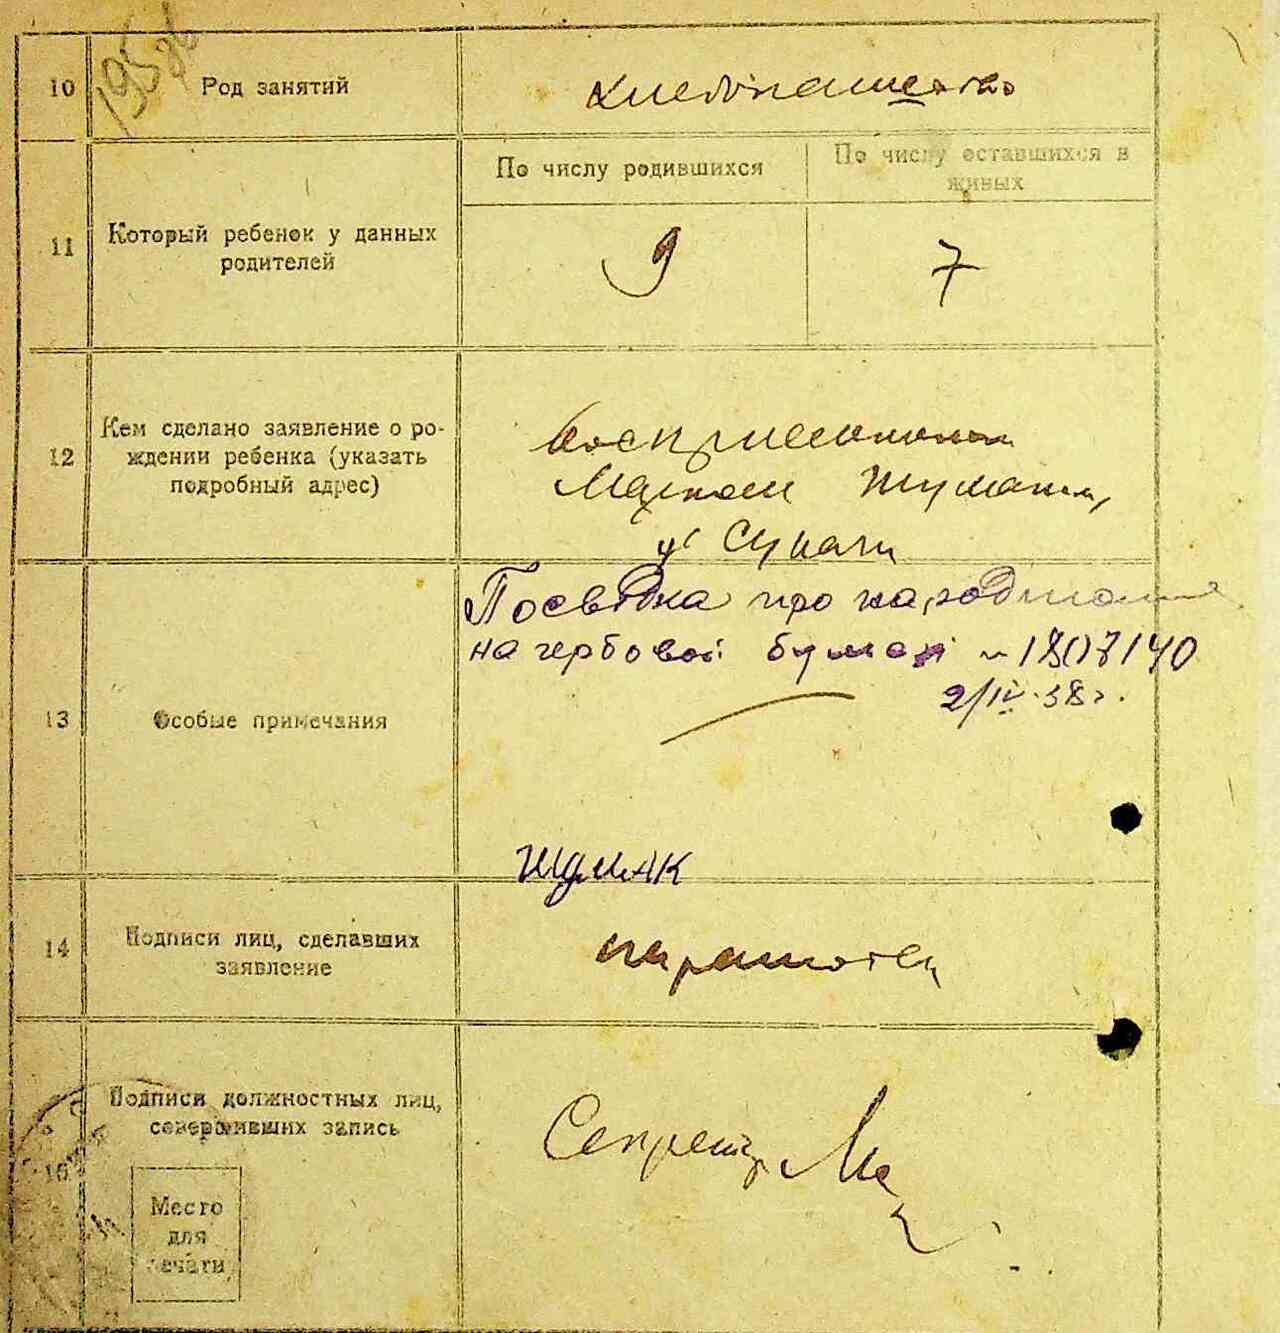 10
Род занятий
хлебопашество
11
Который ребенок у данных
родителей
По числу родившихся
По числу оставшихся в
живых
9
7
12
Кем сделано заявление о ро-
ждении ребенка (указать
подробный адрес)
13
Особые примечания
Посвідка про народження
на гербовой бумазі № 1807140
2/IV 38 г.
Шумак
14
Подписи лиц, сделавших
заявление
15
Подписи должностных лиц,
совершивших запись
Секретар
Место
для
печати